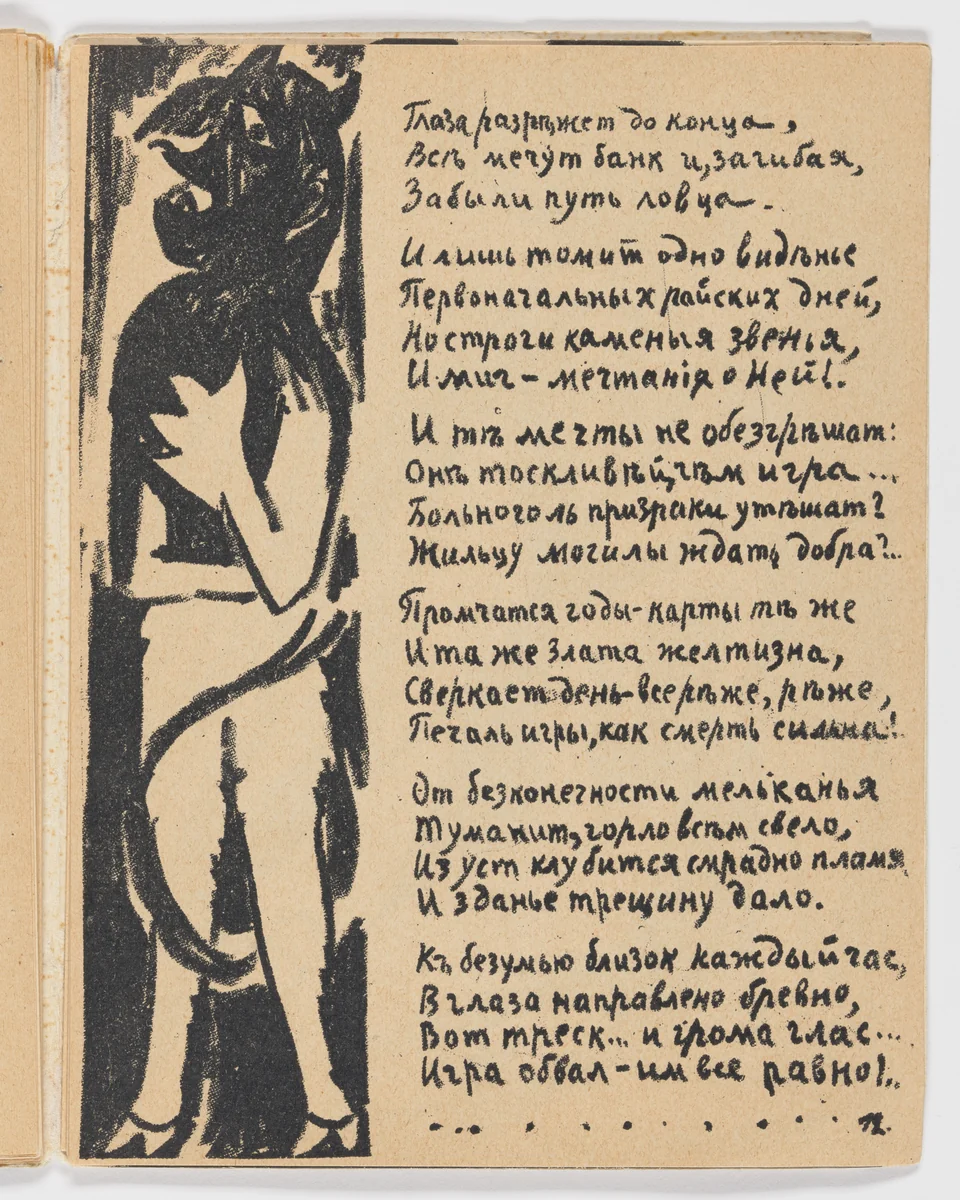 Глаза разрѣжет до конца,
Всѣ мечут банк и, загибая,
Забыли путь ловца.
И лишь томит одно видѣнье
Первоначальных райских дней,
Но строги каменья звенья,
И миг – мечтанія о Ней!.
И тѣ мечты не обезгрѣшат:
Онѣ тоскливѣй, чѣм игра...
Больного ль призраки утѣшат?
Жильцу могилы ждать добра?..
Промчатся годы – карты тѣ же
И та же злата желтизна,
Сверкает день – все рѣже, рѣже,
Печаль игры, как смерть сильна!.
От безконечности мельканья
Туманит, горло всѣм свело,
Из уст клубится смрадно пламя
И зданье трещину дало.
Къ безумью близок каждый час,
В глаза направлено бревно,
Вот треск... и грома глас...
Игра обвал – им все равно!..
12.